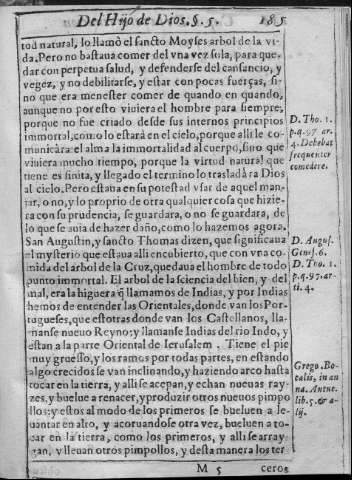 Del Hijo de Dios. §. 5. 185
tod natural, lo llamò el sancto Moyses arbol de la vi-
da. Pero no bastaua comer del vna vez sola, para que-
dar con perpetua salud, y defenderse del cansancio, y
vegez, y no debilitarse, y estar con pocas fuerças, si-
no que era menester comer de quando en quando,
aunque no por esto viuiera el hombre para siempre,
porque no fue criado desde sus internos principios
immortal, como lo estarà en el cielo, porque alli le co-
municàra el alma la immortalidad al cuerpo, sino que
viuiera mucho tiempo, porque la virtud natural que
tiene es finita, y llegado el termino lo trasladàra Dios
al cielo. Pero estaua en su potestad vsar de aquel man-
jar, o no, y lo proprio de otra qualquier cosa que hizie-
ra con su prudencia, se guardara, o no se guardara, de
lo que se auia de hazer daño, como lo hazemos agora.
San Augustin, y sancto Thomas dizen, que significaua
el mysterio que estaua alli encubierto, que con vna co-
mida del arbol de la Cruz, quedaua el hombre de todo
punto immortal. El arbol de la sciencia del bien, y del
mal, era la higuera q̃ llamamos de Indias, y por Indias
hemos de entender las Orientales, donde van los Por-
tugueses, que estotras donde van los Castellanos, lla-
manse nueuo Reyno: y llamanse Indias del rio Indo, y
estan a la parte Oriental de Ierusalem. Tiene el pie
muy gruesso, y los ramos por todas partes, en estando
algo crecidos se van inclinando, y haziendo arco hasta
tocar en la tierra, y alli se acepan, y echan nueuas ray-
zes, y buelue a renacer, y produzir otros nueuos pimpo
llos: y estos al modo de los primeros se bueluen a le-
uantar en alto, y acoruandose otra vez, bueluen a to-
car en la tierra, como los primeros, y alli se array-
gan, y lleuan otros pimpollos, y desta manera los ter
M 5 ceros
D. Tho. 1.
p. q. 97 ar.
4. Debebat
frequenter
comedere.
D. Augus.
Genes. 6.
D. Tho. 1.
p. q. 97. ar-
ti. 4.
Grego. Be-
calis, in an
na. Antue.
lib. 5. & a-
lij.